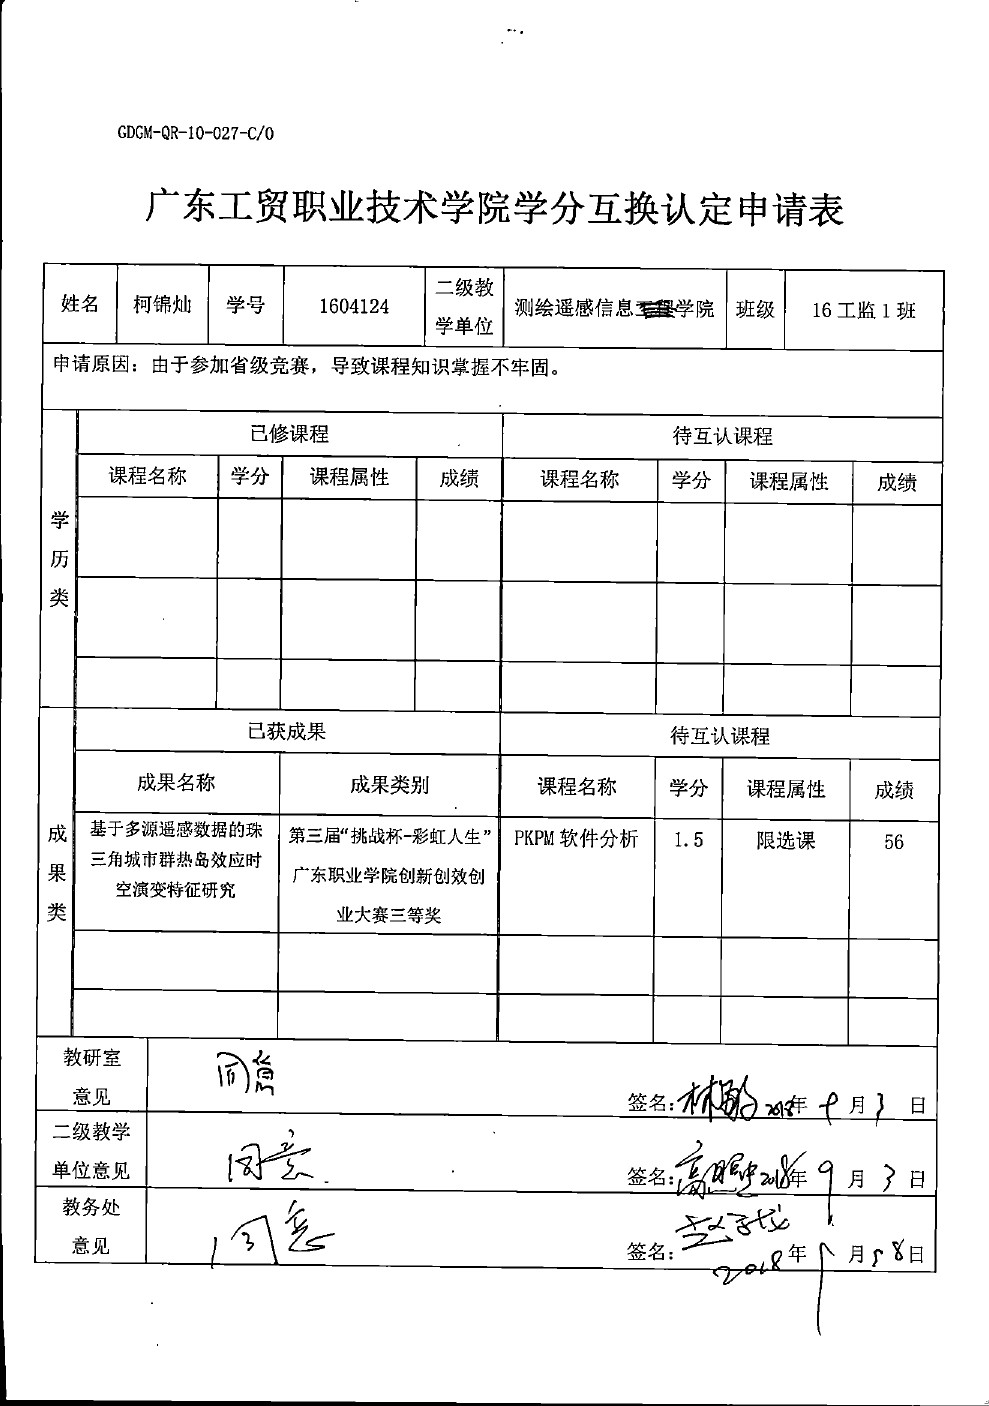 GDGM-QR-10-027-C/0
广东工贸职业技术学院学分互换认定申请表
姓名 柯锦灿 学号 1604124 二级教学单位 测绘遥感信息学院 班级 16工监1班
申请原因：由于参加省级竞赛，导致课程知识掌握不牢固。
学历类
已修课程 待互认课程
课程名称 学分 课程属性 成绩 课程名称 学分 课程属性 成绩
成果类
已获成果 待互认课程
成果名称 成果类别 课程名称 学分 课程属性 成绩
基于多源遥感数据的珠
三角城市群热岛效应时
空演变特征研究
第三届“挑战杯-彩虹人生”
广东职业学院创新创效创
业大赛三等奖
PKPM 软件分析 1.5 限选课 56
教研室
意见
同意
签名: 2018年 9月3日
二级教学
单位意见
同意
签名: 2018年9月3日
教务处
意见
同意
签名:
2018年9月 日